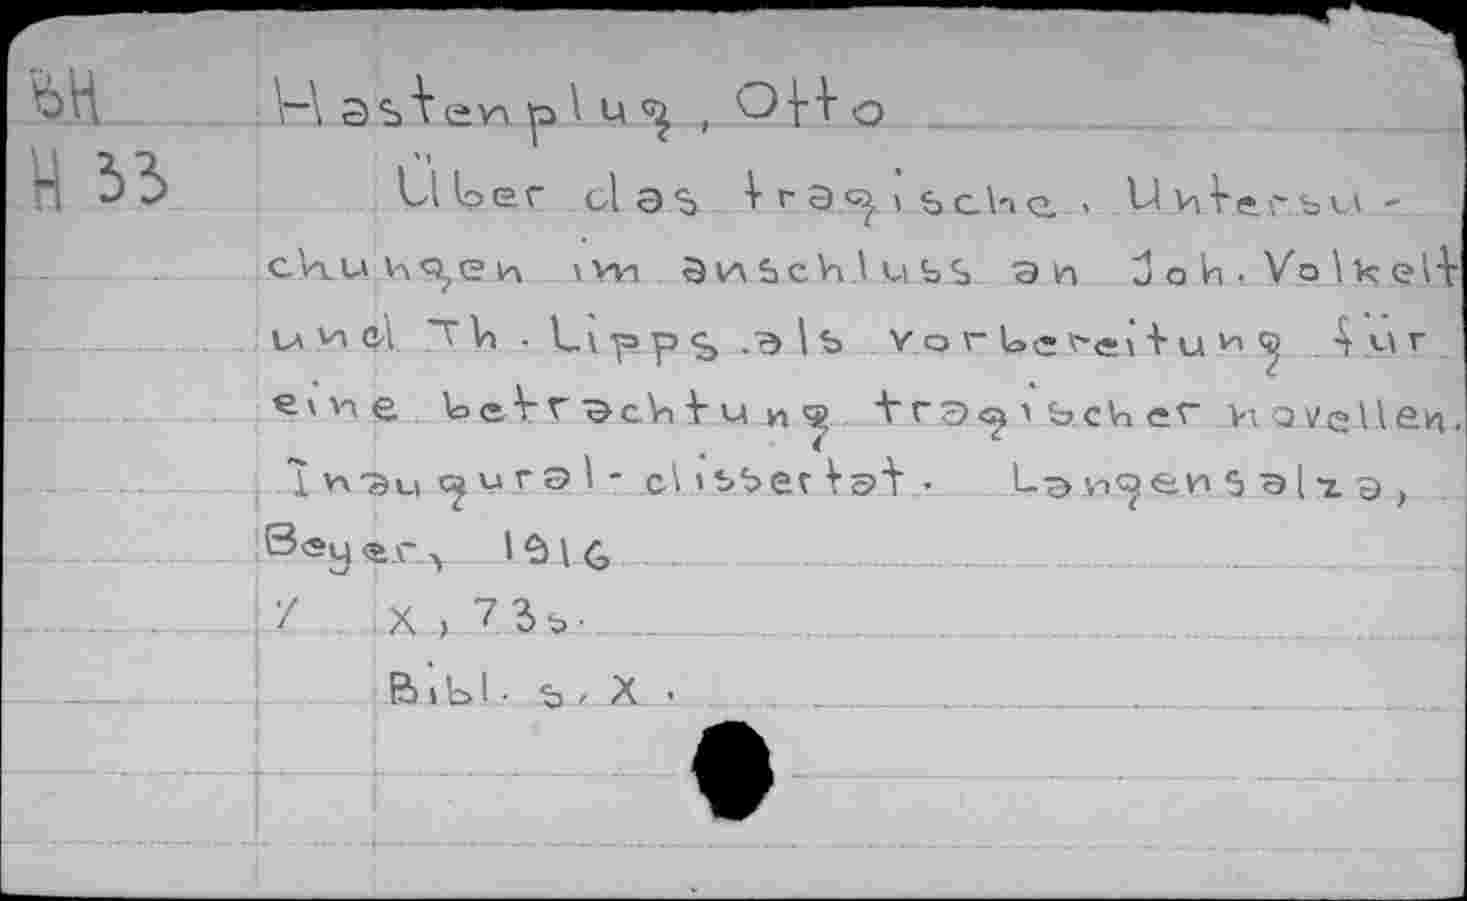 BH Hastenpflug, Otto
H 33 Über das tragische. Untersu-
chungen im anschluss an Joh. Volkelt
und Th. Lipps als vorbereitung für
eine betrachtung tragischer novellen.
Inaugural-dissertat. Langensalza,
Beyer, 1916
X, 73 s.
Bibl. s. X.